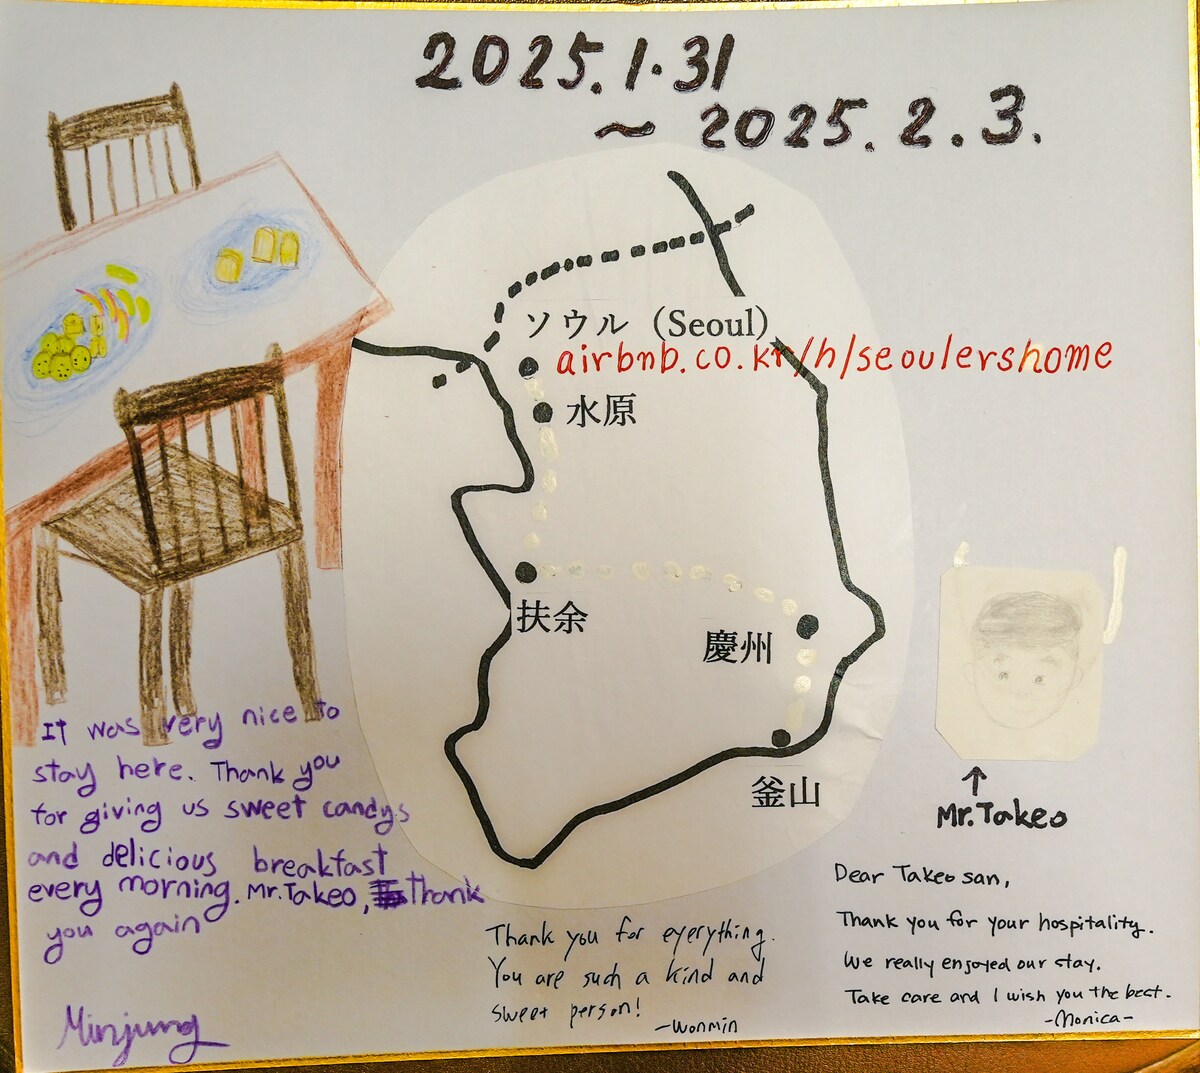 2025.1.31
~ 2025.2.3.
ソウル (Seoul)
airbnb.co.kr/h/seoulershome
水原
扶余
慶州
釜山
It was very nice to
stay here. Thank you
for giving us sweet candys
and delicious breakfast
every morning. Mr.Takeo, thank
you again
Minjung
Thank you for everything.
You are such a kind and
sweet person!
-Wonmin
↑
Mr.Takeo
Dear Takeo san,
Thank you for your hospitality.
We really enjoyed our stay.
Take care and I wish you the best.
-Monica-